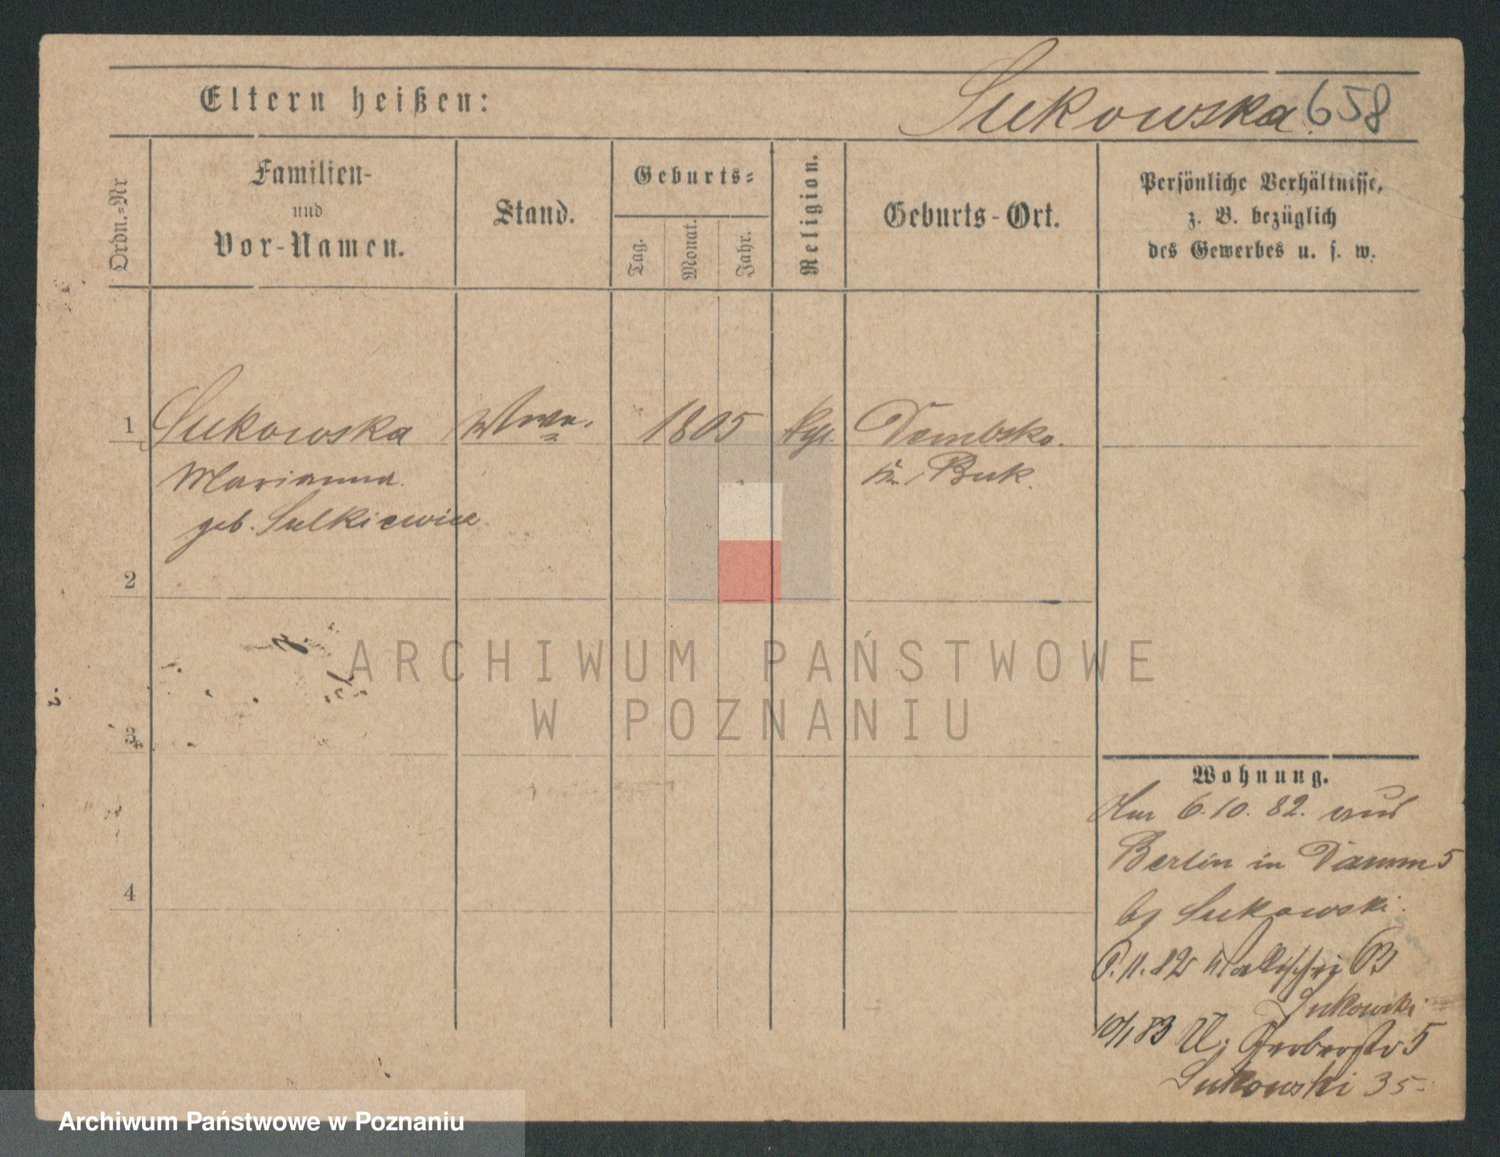 Eltern heißen:
Sukowska 658
Ordn.=Nr
Familien-
und
Vor-Namen.
Stand.
Geburts=
Tag.
Monat.
Jahr.
Religion.
Geburts-Ort.
Persönliche Verhältnisse,
z. B. bezüglich
des Gewerbes u. s. w.
1 Sukowska Wwe. 1805 Dembsko.
Marianna
geb. Sulkiewicz.
Buk.
2
3
4
ARCHIWUM PAŃSTWOWE
W POZNANIU
Wohnung.
6.10.82. aus
Berlin in Damm 5
Sukowski.
11.82 Wallischei 63
Sukowski
10/1 83 Gerberstr 5
Sukowski 35
Archiwum Państwowe w Poznaniu